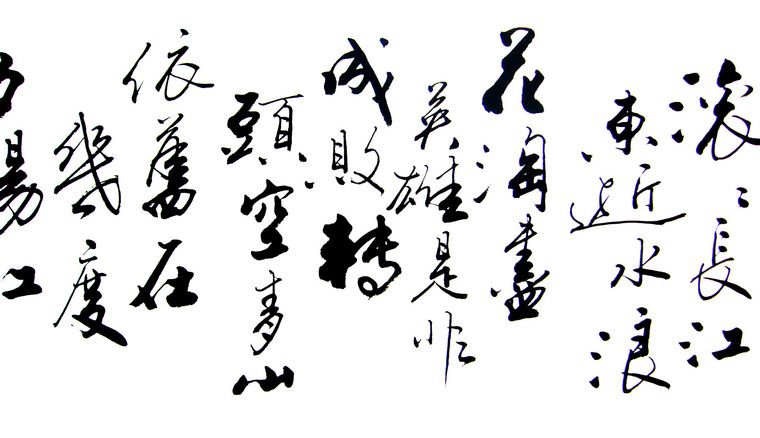 滾〻長江
東逝水浪
花淘盡
英雄是非
成敗轉
頭空青山
依舊在
幾度